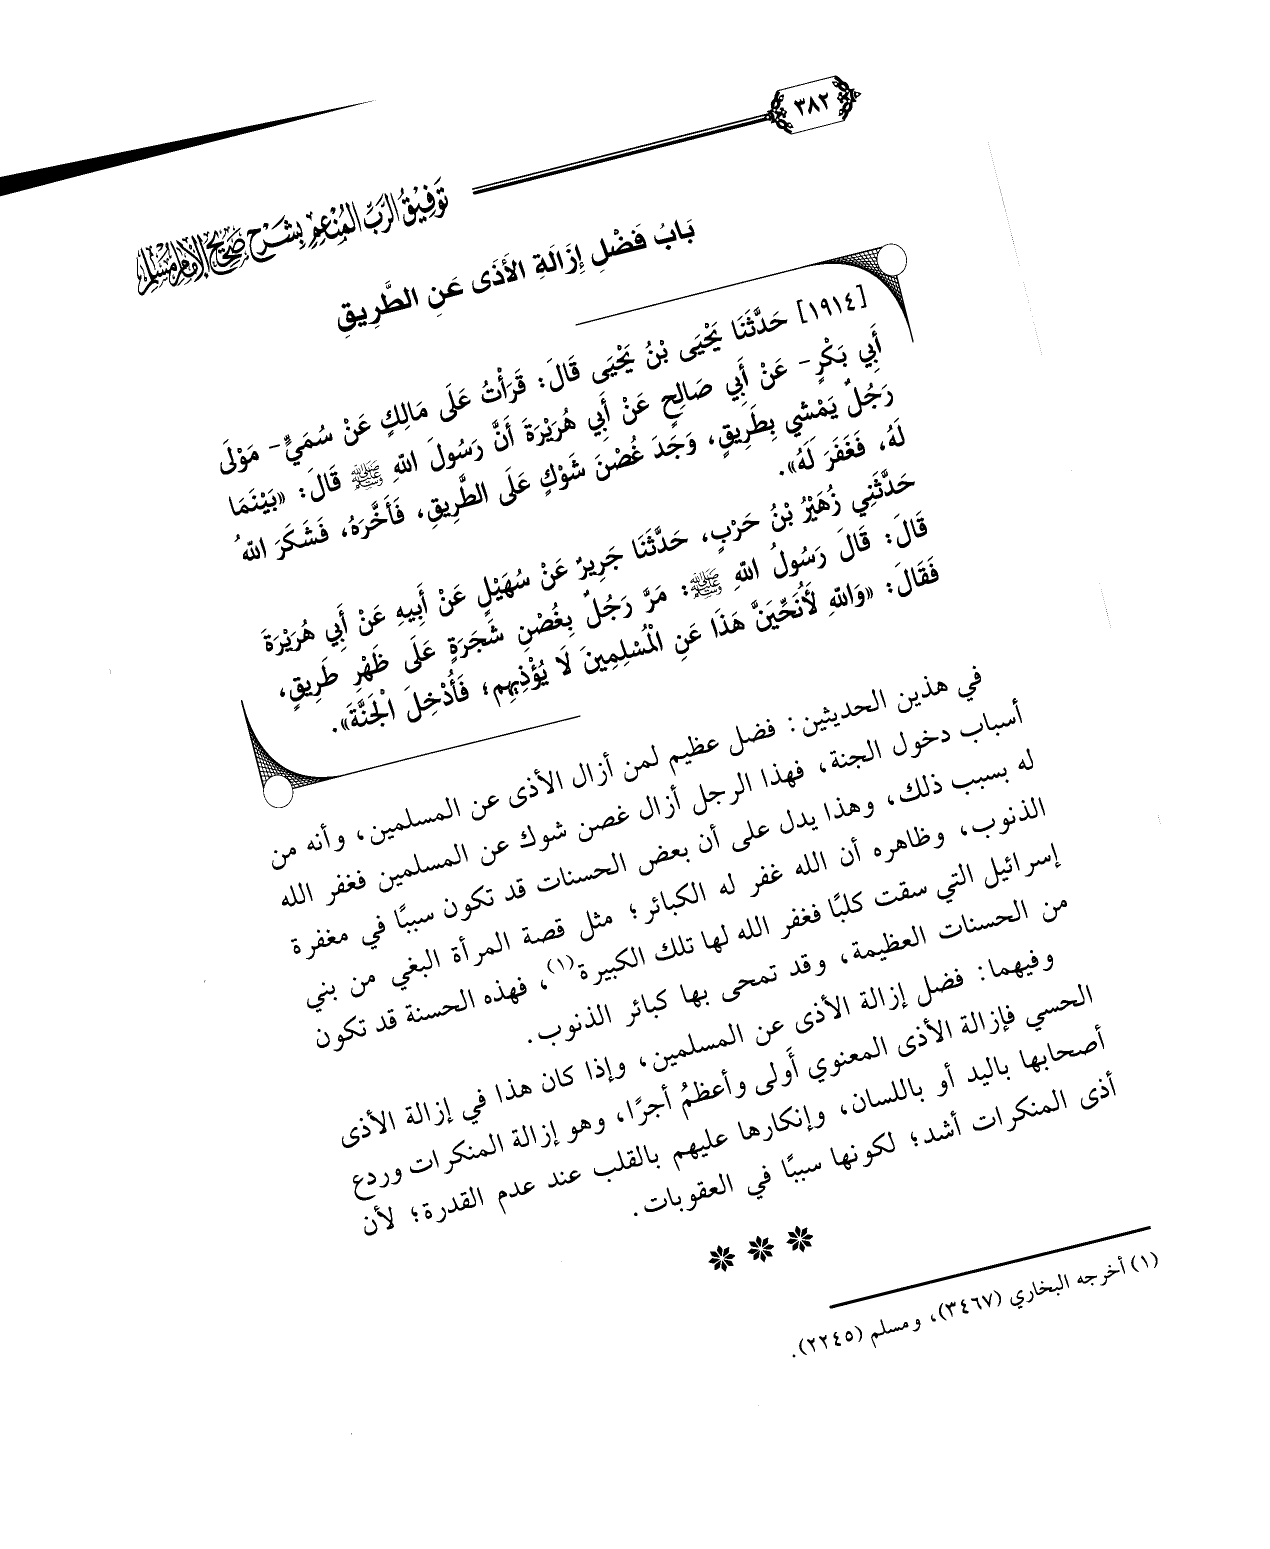 ٣٨٢
تَوْفِيقُ الرَّبِّ الْمُنْعِمِ بِشَرْحِ صَحِيحِ الإِمَامِ مُسْلِمٍ
بَابُ فَضْلِ إِزَالَةِ الأَذَى عَنِ الطَّرِيقِ
[١٩١٤] حَدَّثَنَا يَحْيَى بْنُ يَحْيَى قَالَ: قَرَأْتُ عَلَى مَالِكٍ عَنْ سُمَيٍّ- مَوْلَى
أَبِي بَكْرٍ- عَنْ أَبِي صَالِحٍ عَنْ أَبِي هُرَيْرَةَ أَنَّ رَسُولَ اللهِ ﷺ قَالَ: «بَيْنَمَا
رَجُلٌ يَمْشِي بِطَرِيقٍ، وَجَدَ غُصْنَ شَوْكٍ عَلَى الطَّرِيقِ، فَأَخَّرَهُ، فَشَكَرَ اللهُ
لَهُ، فَغَفَرَ لَهُ».
حَدَّثَنِي زُهَيْرُ بْنُ حَرْبٍ، حَدَّثَنَا جَرِيرٌ عَنْ سُهَيْلٍ عَنْ أَبِيهِ عَنْ أَبِي هُرَيْرَةَ
قَالَ: قَالَ رَسُولُ اللهِ ﷺ: مَرَّ رَجُلٌ بِغُصْنِ شَجَرَةٍ عَلَى ظَهْرِ طَرِيقٍ،
فَقَالَ: «وَاللهِ لَأُنَحِّيَنَّ هَذَا عَنِ الْمُسْلِمِينَ لَا يُؤْذِيهِم؛ فَأُدْخِلَ الْجَنَّةَ».
في هذين الحديثين: فضل عظيم لمن أزال الأذى عن المسلمين، وأنه من
أسباب دخول الجنة، فهذا الرجل أزال غصن شوك عن المسلمين فغفر الله
له بسبب ذلك، وهذا يدل على أن بعض الحسنات قد تكون سببًا في مغفرة
الذنوب، وظاهره أن الله غفر له الكبائر؛ مثل قصة المرأة البغي من بني
إسرائيل التي سقت كلبًا فغفر الله لها تلك الكبيرة(١)، فهذه الحسنة قد تكون
من الحسنات العظيمة، وقد تمحى بها كبائر الذنوب.
وفيهما: فضل إزالة الأذى عن المسلمين، وإذا كان هذا في إزالة الأذى
الحسي فإزالة الأذى المعنوي أَولى وأعظمُ أجرًا، وهو إزالة المنكرات وردع
أصحابها باليد أو باللسان، وإنكارها عليهم بالقلب عند عدم القدرة؛ لأن
أذى المنكرات أشد؛ لكونها سببًا في العقوبات.
(١) أخرجه البخاري (٣٤٦٧)، ومسلم (٢٢٤٥).